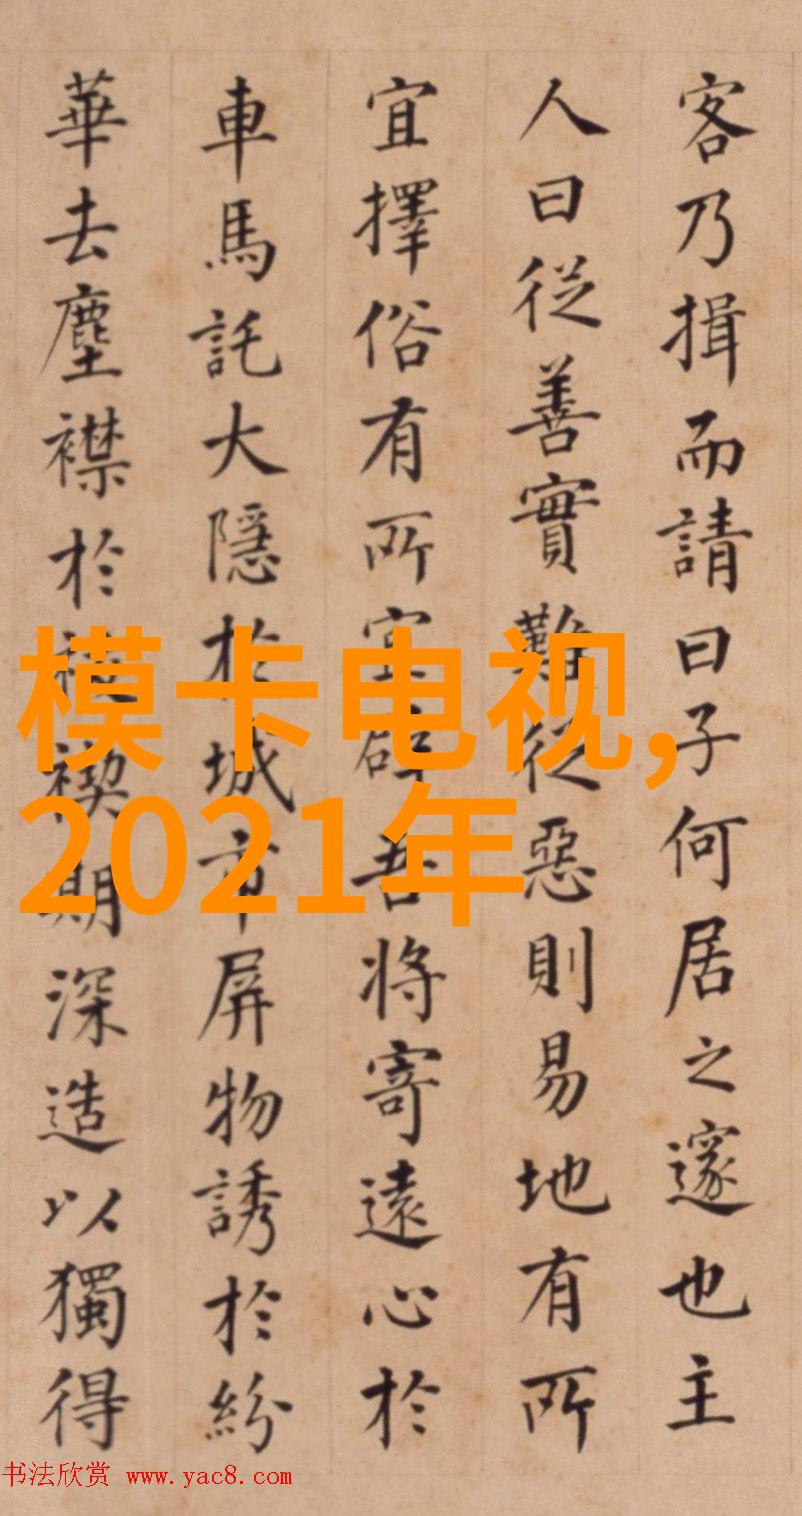 客乃揖而請曰子何居之邃也主
人曰從善實難從惡則易地有所
宜擇俗有所宜辟吾將寄遠心於
車馬託大隱於城市屏物誘於紛
華去塵襟於 禊期深造以獨得
模卡电视,
2021年
书法欣赏 www.yac8.com